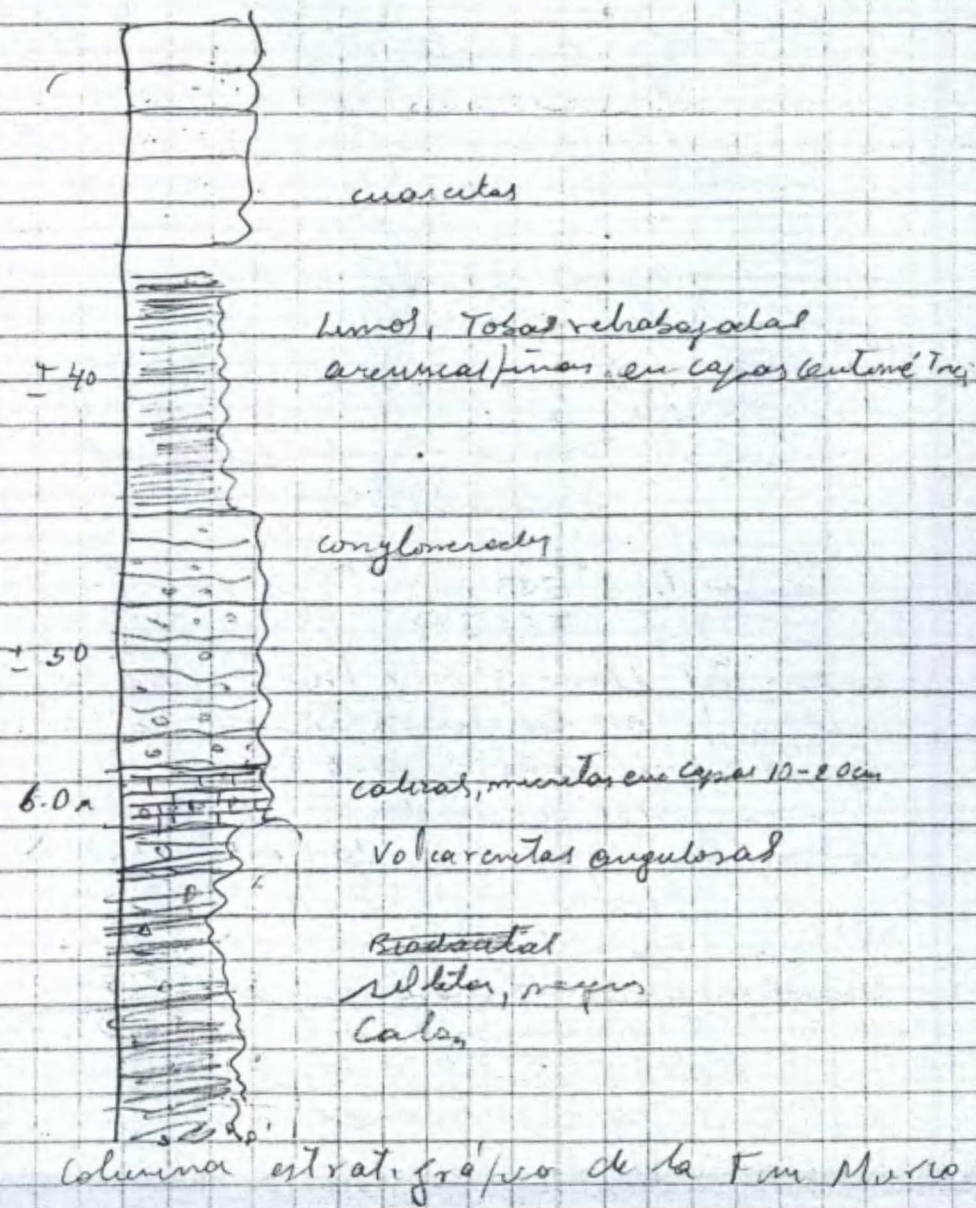 cuarcitas
Limos, Tobas retrabajadas
± 40
areniscas finas en capas centimétric
conglomerados
± 50
calizas, micritas en capas 10-20cm
6.0m
Volcarenitas angulosas
siltitas, negras
Calc,
Columna estratigráfica de la Fm Murco